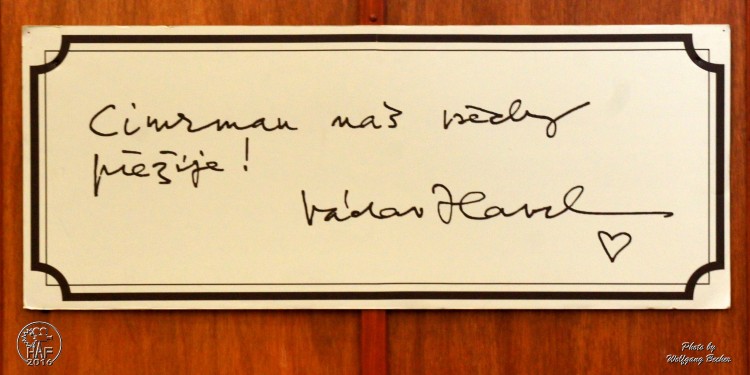 Cimrman náš vždy
přežije!
Václav Havel
HAF
2016
Photo by
Wolfgang Becher